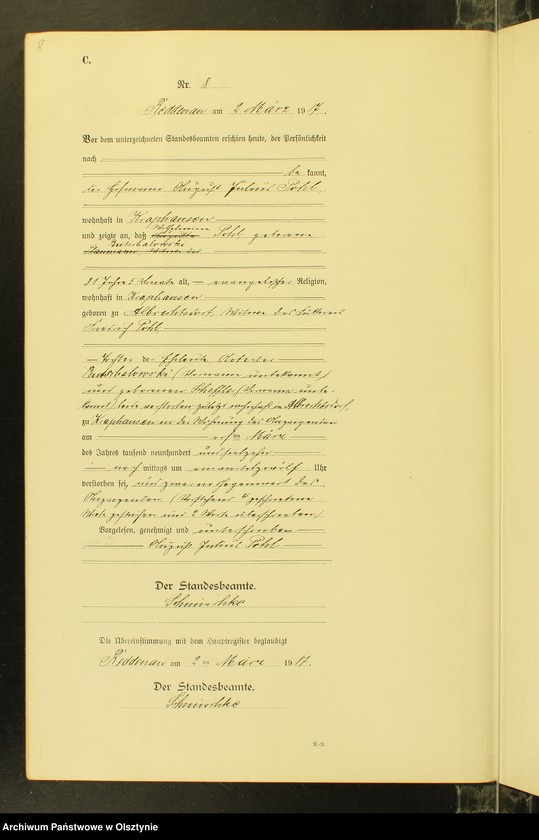 8
C.
Nr. 8
Reddenau am 2 März 1917.
Vor dem unterzeichneten Standesbeamten erschien heute, der Persönlichkeit
nach
be kannt,
der August Julius Pohl
wohnhaft in Kraphausen
Wilhelmine
und zeigte an, daß Pohl geborene
81 Jahre 5 Monate alt, evangelischer Religion,
wohnhaft in Kraphausen
geboren zu Albrechtsdorf, Witwe des
Pohl,
Tochter der Eheleute
(Vorname unbekannt)
und geborenen (Vorname unbe-
kannt) beide verstorben zuletzt wohnhaft in Albrechtsdorf,
zu Kraphausen in der Wohnung des Anzeigenden
am ersten März
des Jahres tausend neunhundert und siebzehn
nach mittags um Uhr
verstorben sei, und zwar in Gegenwart des
Anzeigenden (Vorstehend 4 gedruckte
Worte gestrichen und 2 Worte überschrieben)
Vorgelesen, genehmigt und unterschrieben
August Julius Pohl
Der Standesbeamte.
Die Übereinstimmung mit dem Hauptregister beglaubigt
Reddenau am 2 ten März 1917.
Der Standesbeamte.
Archiwum Państwowe w Olsztynie